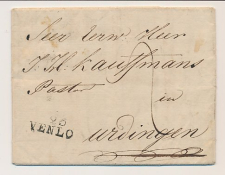 Seer Eerw Heer
J. H. Kauffmans
Pastor
in
Urdingen
96
VENLO